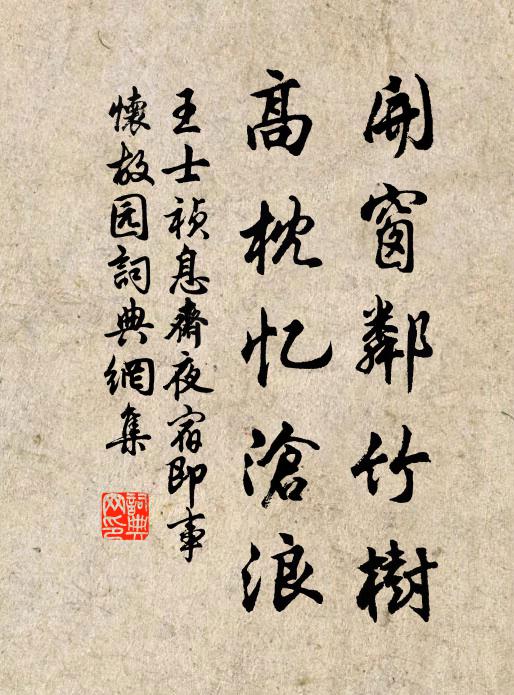 開窗鄰竹樹
高枕忆滄浪
王士禎息齋夜宿即事
懷故园詞典網集
詞典网印